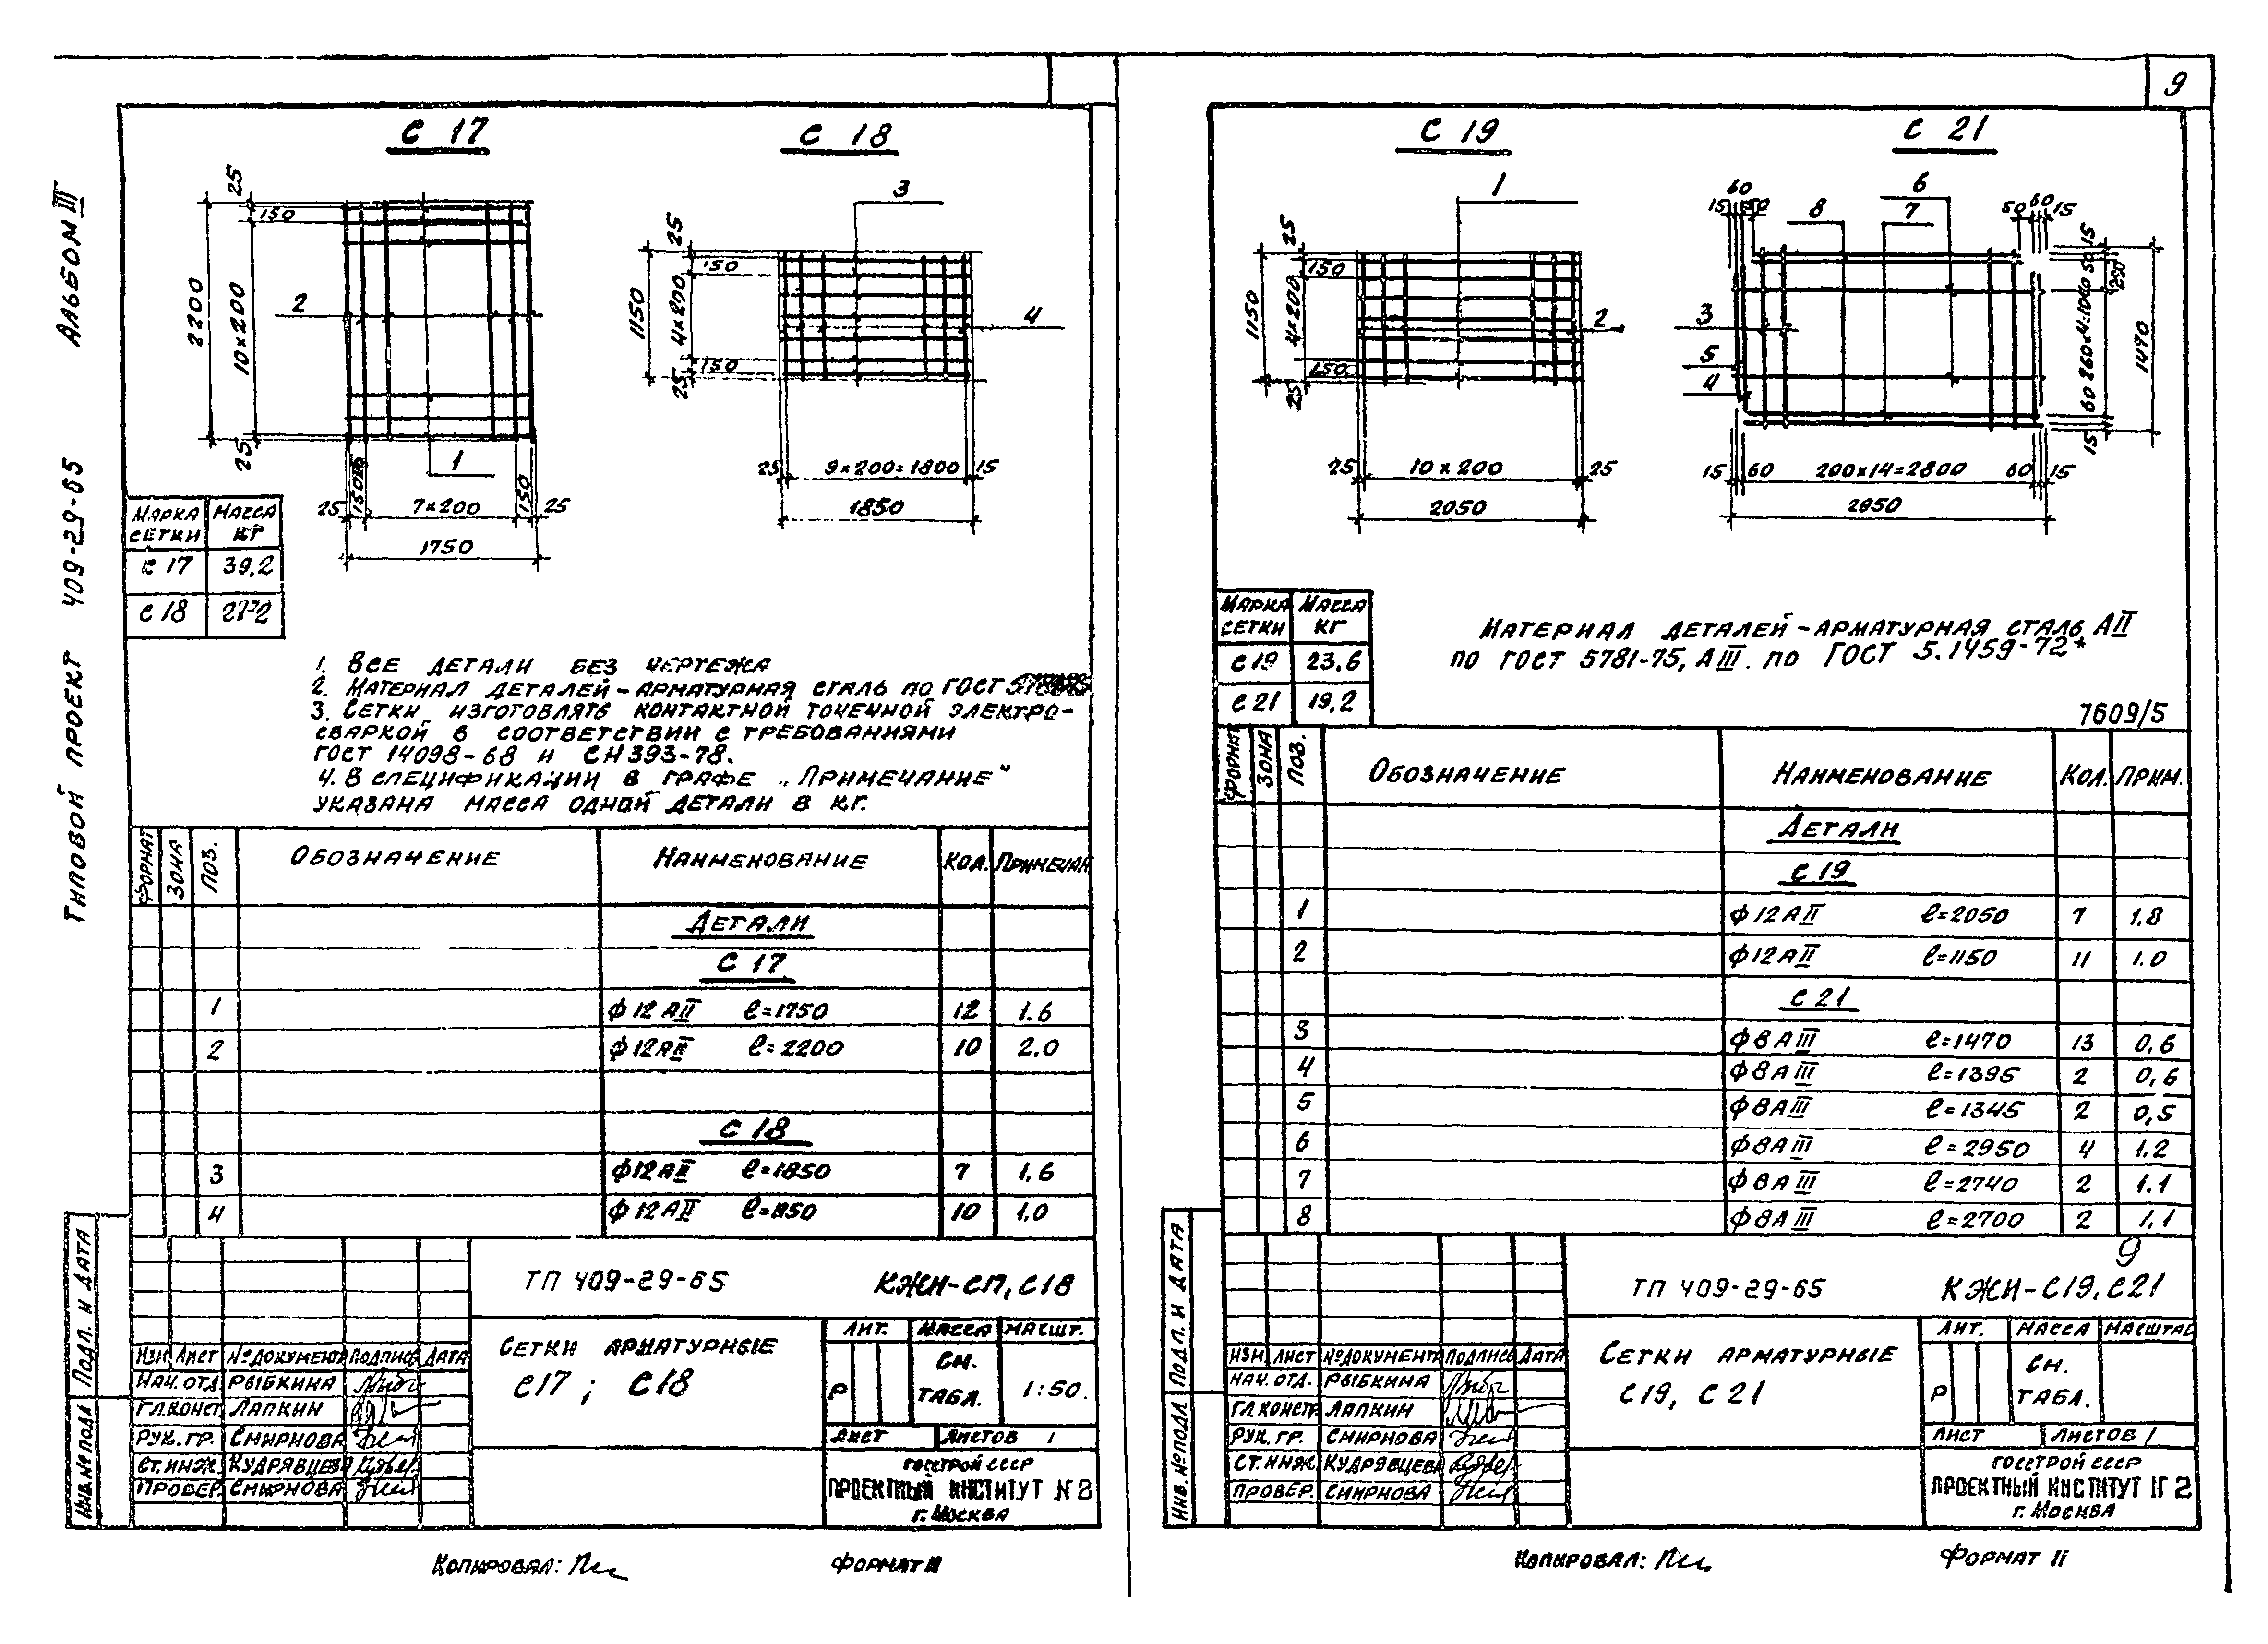 9
Альбом III
Типовой проект 409-29-65
С 17
С 18
25
150
2200
10×200
25
2
1
25
150
7×200
150
25
1750
3
25
150
1150
4×200
150
25
4
25
9×200=1800
15
1850
Марка сетки
Масса кг
С 17 39,2
С 18
1. Все детали без чертежа
2. Материал деталей-арматурная сталь по ГОСТ
3. Сетки изготовлять контактной точечной электро-
сваркой в соответствии с требованиями
ГОСТ 14098-68 и СН 393-78.
4. В спецификации в графе „Примечание"
указана масса одной детали в кг.
Формат Зона Поз. Обозначение Наименование Кол. Примечан
Детали
С 17
1 ф12АII ℓ=1750 12 1.6
2 ф12АII ℓ=2200 10 2.0
С 18
3 ф12АII ℓ=1850 7 1,6
4 ф12АII ℓ=1150 10 1,0
ТП 409-29-65 КЖИ-С17, С18
Сетки арматурные
С17; С18
Лит. Масса Масшт.
Р См. табл. 1:50.
Лист Листов 1
Госстрой СССР
Проектный институт N2
г. Москва
Изм Лист №документа Подпись Дата
Нач. отд. Рыбкина
Гл.конст. Лапкин
Рук. гр. Смирнова
Ст. инж. Кудрявцева
Провер. Смирнова
Подп. и дата
Инв.№подл
Копировал:
Формат 11
С 19
С 21
1
25
150
1150
4×200
150
25
2
25
10×200
25
2050
60
15
50
8
6
7
50
60
15
15
50
250
260×4=1040
60
15
1470
3
5
4
15
60
200×14=2800
60
15
2950
Марка сетки
Масса кг
С 19 23.6
С 21 19,2
Материал деталей-арматурная сталь АII
по ГОСТ 5781-75, АIII. по ГОСТ 5.1459-72*
7609/5
Формат Зона Поз. Обозначение Наименование Кол. Прим.
Детали
С 19
1 ф12АII ℓ=2050 7 1.8
2 ф12АII ℓ=1150 11 1.0
С 21
3 ф8АIII ℓ=1470 13 0,6
4 ф8АIII ℓ=1395 2 0,6
5 ф8АIII ℓ=1345 2 0,5
6 ф8АIII ℓ=2950 4 1.2
7 ф8АIII ℓ=2740 2 1.1
8 ф8АIII ℓ=2700 2 1,1
9
ТП 409-29-65 КЖИ-С19, С21
Сетки арматурные
С19, С 21
Лит. Масса Масштаб
Р См. табл.
Лист Листов 1
Госстрой СССР
Проектный институт N2
г. Москва
Изм Лист №документа Подпись Дата
Нач. отд. Рыбкина
Гл.констр. Лапкин
Рук. гр. Смирнова
Ст. инж. Кудрявцева
Провер. Смирнова
Подп. и дата
Инв.№подл
Копировал:
Формат 11